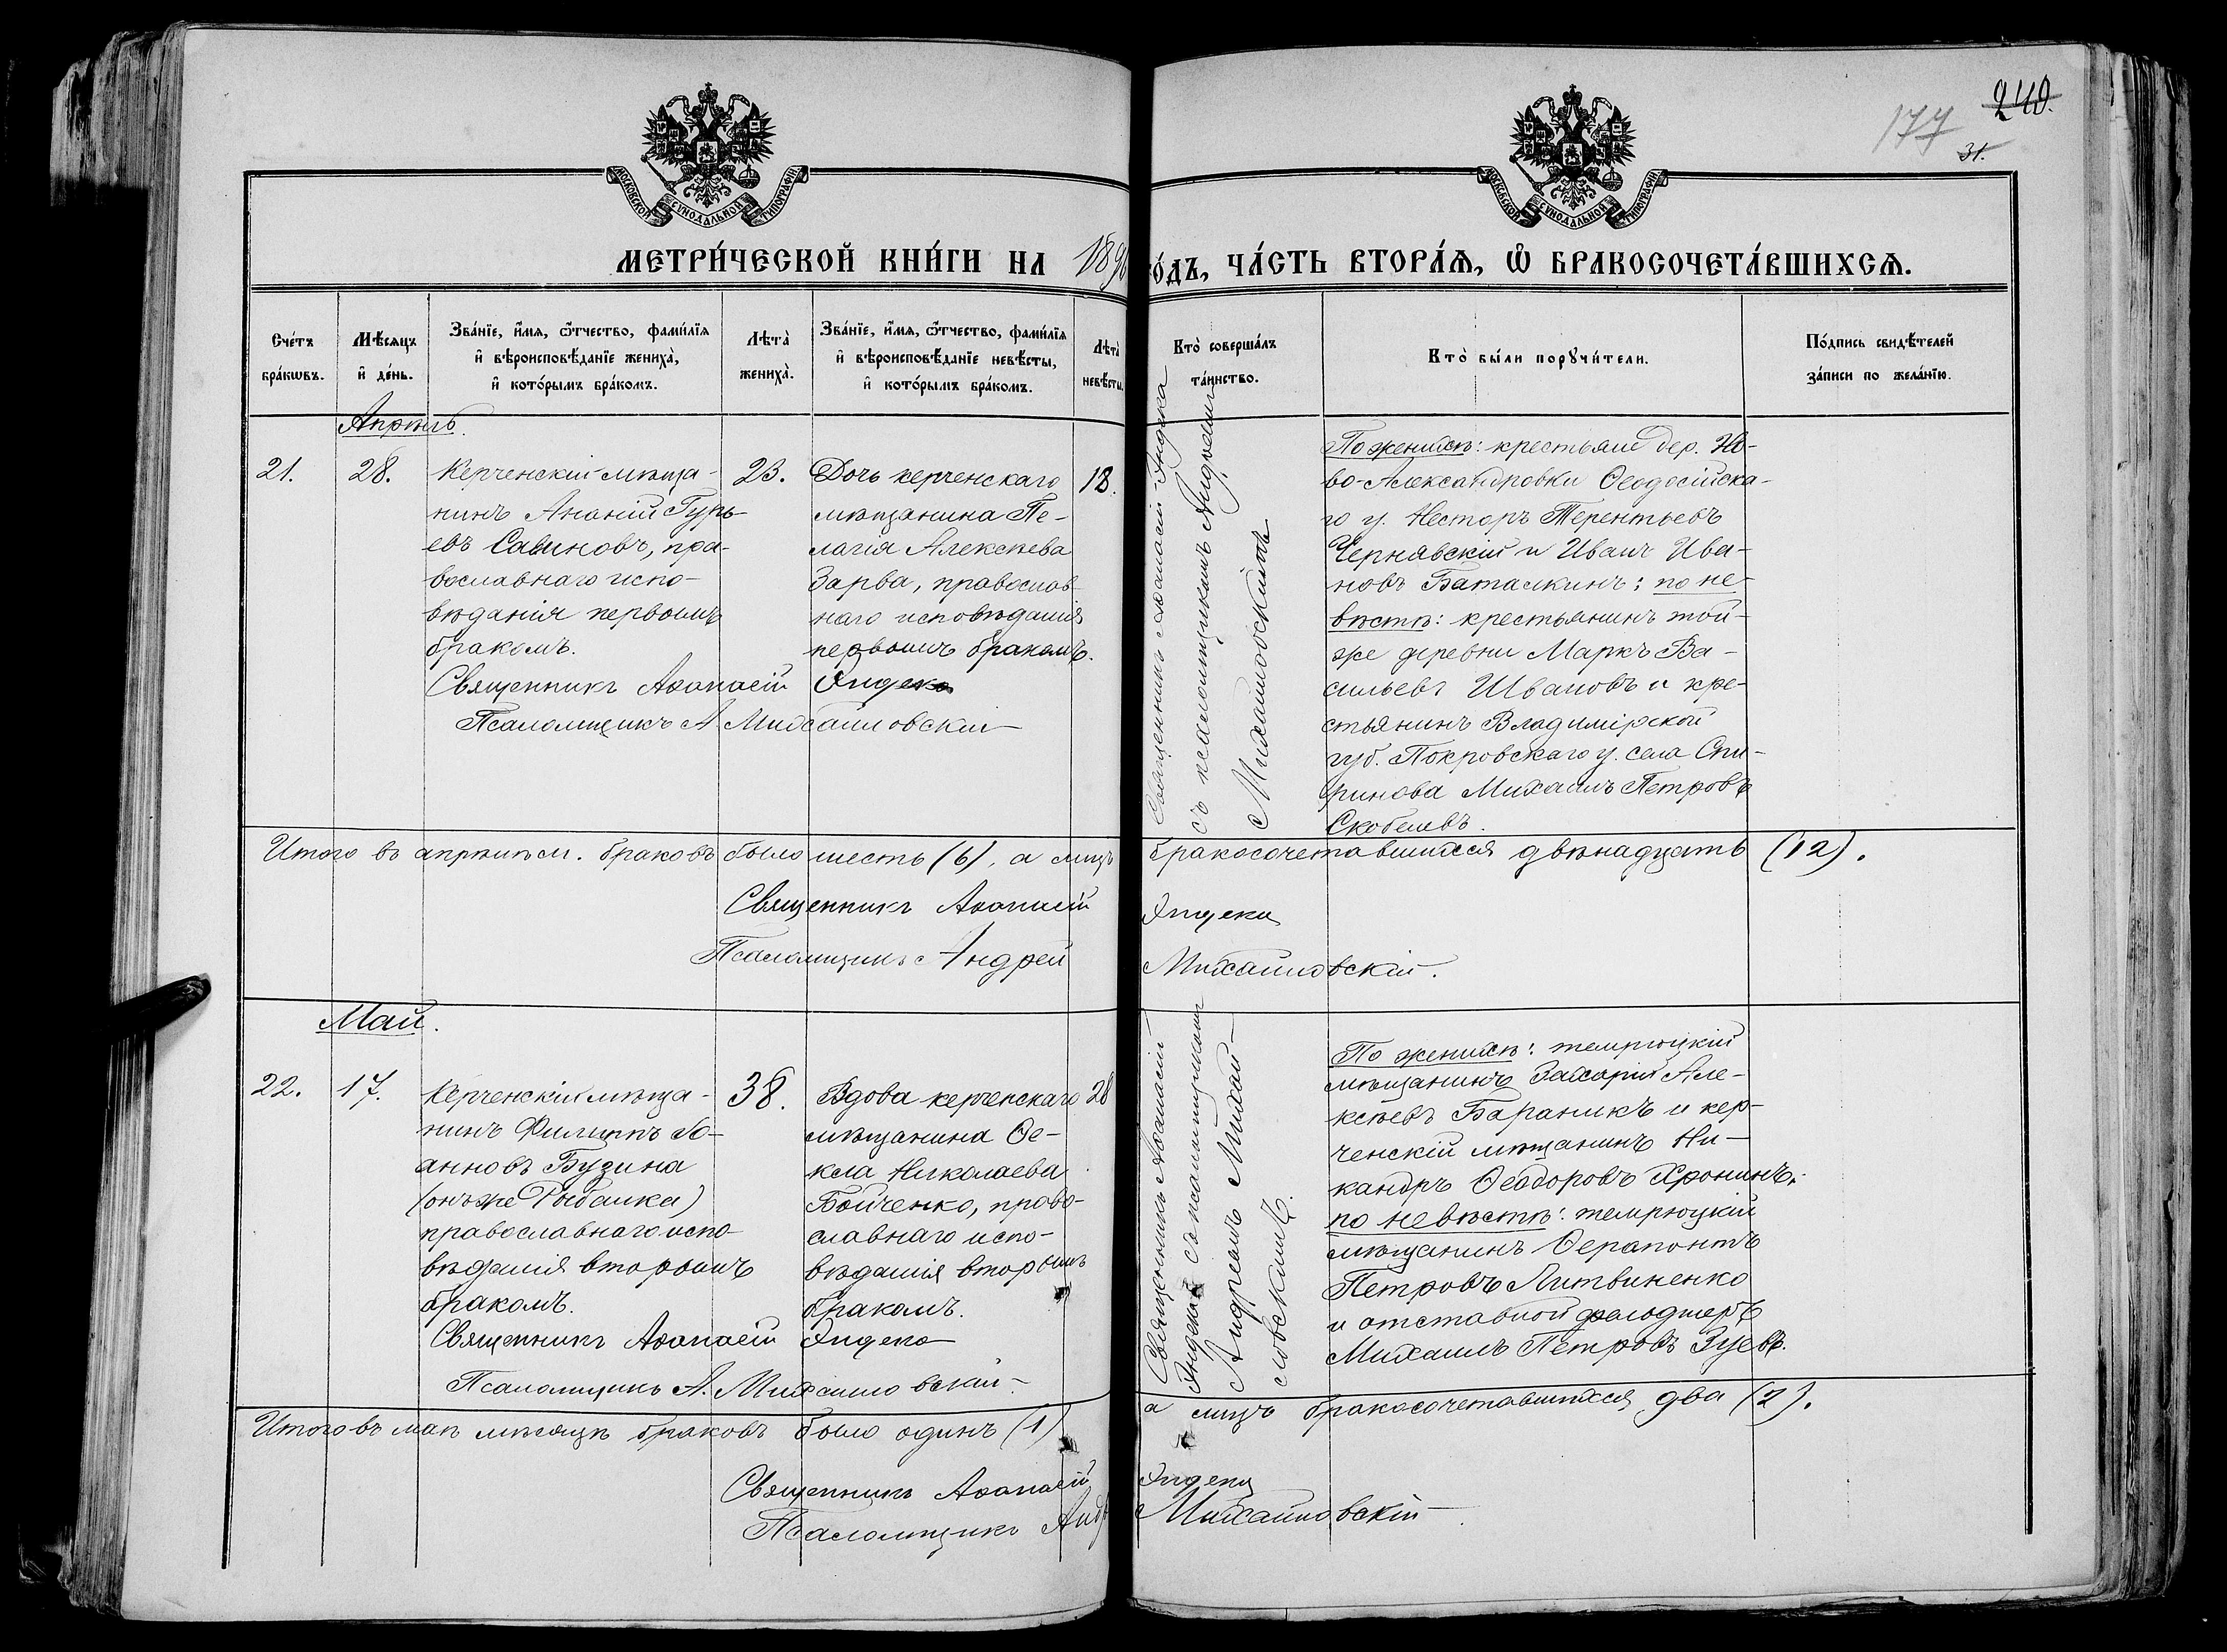 240.
177
31.
МОСКОВСКОЙ СУНОДАЛЬНОЙ ТИПОГРАФІИ
МОСКОВСКОЙ СУНОДАЛЬНОЙ ТИПОГРАФІИ
МЕТРИ́ЧЕСКОЙ КНИ́ГИ НА 189
О́ДЪ, ЧА́СТЬ ВТОРА́Ѧ, Ѽ БРАКОСОЧЕТА́ВШИХСѦ.
Сче́тъ бра́кωвъ.
Мѣ́сѧцъ и҆ де́нь.
Зва́нїе, и҆́мѧ, ѻ҆́тчество, фами́лїѧ и҆ вѣроисповѣ́данїе жениха̀, и҆ кото́рымъ бра́комъ.
Лѣта̀ жениха̀.
Зва́нїе, и҆́мѧ, ѻ҆́тчество, фами́лїѧ и҆ вѣроисповѣ́данїе невѣ́сты, и҆ кото́рымъ бра́комъ.
Лѣта̀ невѣ́сты.
Кто̀ соверша́лъ та́инство.
Кто̀ бы́ли порꙋчи́тели.
По́дпись свидѣ́телей за́писи по жела́нїю.
Апрѣль.
21.
28.
Керченскій мѣща-
нинъ Ананій Гурь-
евъ Савиновъ, пра-
вославнаго испо-
вѣданія первымъ
бракомъ.
23.
Дочь керченскаго
мѣщанина Пе-
лагія Алексѣева
Зарва, православ-
наго исповѣданія
первымъ бракомъ.
18.
Священникъ Аѳанасій Яндека
Псаломщикъ А. Михайловскій
Священникъ Аѳанасій Яндека
съ псаломщикомъ Андреемъ
Михайловскимъ
По женихѣ: крестьяне дер. Но-
во-Александровки Ѳеодосійска-
го у. Несторъ Терентьевъ
Чернявскій и Иванъ Ива-
новъ Баталкинъ; по не-
вѣстѣ: крестьянинъ той-
же деревни Маркъ Ва-
сильевъ Ивановъ и кре-
стьянинъ Владимірской
губ. Покровскаго у. села Спи-
ринова Михаилъ Петровъ
Скобелевъ.
Итого въ апрѣлѣ м. браковъ было шесть (6), а лицъ бракосочетавшихся двѣнадцать (12).
Священникъ Аѳанасій Яндека
Псаломщикъ Андрей Михайловскій.
Май.
22.
17.
Керченскій мѣща-
нинъ Филиппъ Іо-
анновъ Бузина
(онъ же Рыбалка)
православнаго испо-
вѣданія вторымъ
бракомъ.
38.
Вдова керченскаго
мѣщанина Ѳе-
кла Николаева
Бойченко, право-
славнаго испо-
вѣданія вторымъ
бракомъ.
28
Священникъ Аѳанасій Яндека
Псаломщикъ А. Михайловскій
Священникъ Аѳанасій
Яндека съ псаломщикомъ
Андреемъ Михай-
ловскимъ.
По женихѣ: темрюцкій
мѣщанинъ Захарій Але-
ксѣевъ Бараникъ и кер-
ченскій мѣщанинъ Ни-
кандръ Ѳеодоровъ Хронинъ;
по невѣстѣ: темрюцкій
мѣщанинъ Ѳерапонтъ
Петровъ Литвиненко
и отставной фельдшеръ
Михаилъ Петровъ Зуевъ.
Итого въ маѣ мѣсяцѣ браковъ было одинъ (1)
а лицъ бракосочетавшихся два (2).
Священникъ Аѳанасій Яндека
Псаломщикъ Андр Михайловскій